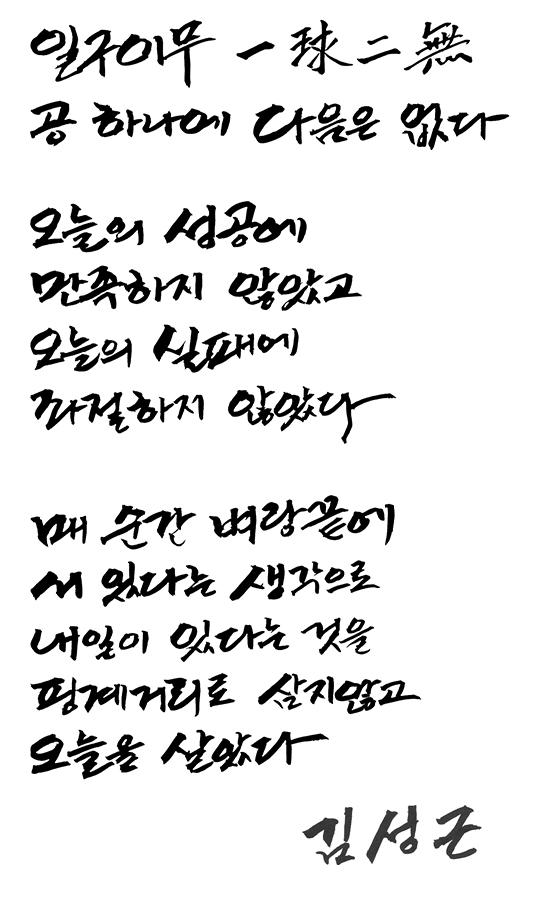 일구이무 一球二無
공 하나에 다음은 없다
오늘의 성공에
만족하지 않았고
오늘의 실패에
좌절하지 않았다
매 순간 벼랑끝에
서 있다는 생각으로
내일이 있다는 것을
핑계거리로 삼지않고
오늘을 살았다
김성근